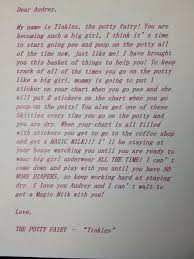 Dear Audrey,
My name is Tinkles, the potty fairy! You are
becoming such a big girl, I think it's time
to start going pee and poop on the potty all
of the time now, just like me! I have brought
you this basket of things to help you! To keep
track of all of the times you go on the potty
like a big girl, mommy is going to put 1
sticker on your chart when you go pee and she
will put 2 stickers on the chart when you go
poop on the potty! You also get one of these
Skittles every time you go on the potty and
you are dry. When your chart is all filled
with stickers you get to go to the coffee shop
and get a MAGIC MILK!!! I'll be staying at
your house watching you until you are ready to
wear big girl underwear ALL THE TIME! I can't
come down and play with you until you have NO
MORE DIAPERS, so keep working hard at staying
dry. I love you Audrey and I can't wait to
get a Magic Milk with you!
Love,
THE POTTY FAIRY - "Tinkles"